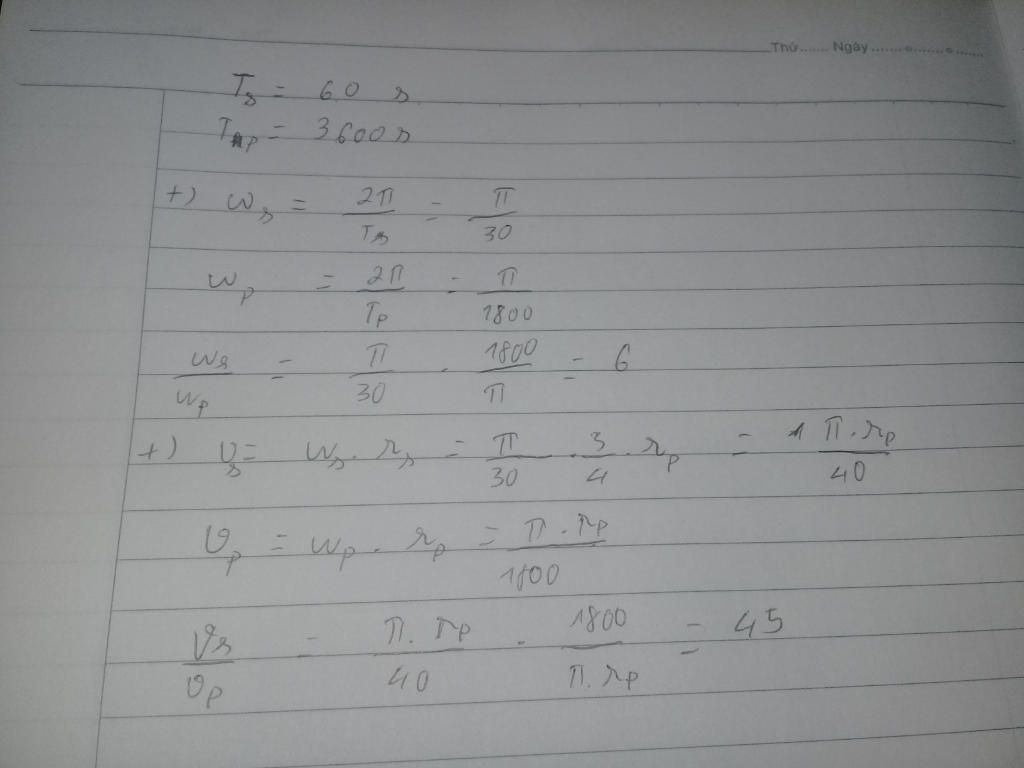 Thứ....... Ngày........o........o.......
T_s = 60 s
T_p = 3600 s
+) ω_s = 2π/T_s = π/30
ω_p = 2π/T_p = π/1800
ω_s/ω_p = π/30 . 1800/π = 6
+) v_s = ω_s . r_s = π/30 . 3/4 . r_p = 1 π.r_p/40
v_p = ω_p . r_p = π.r_p/1800
v_s/v_p = π.r_p/40 . 1800/π.r_p = 45